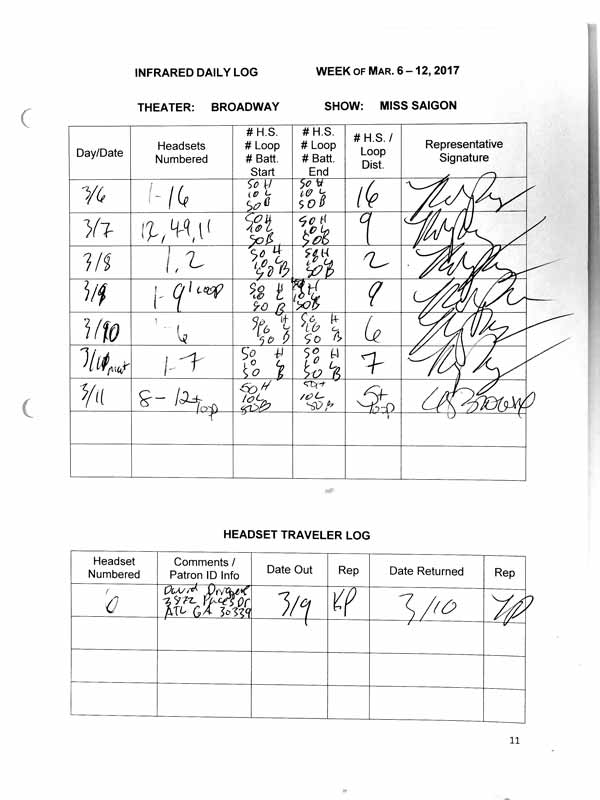 INFRARED DAILY LOG WEEK OF MAR. 6 – 12, 2017
THEATER: BROADWAY SHOW: MISS SAIGON
Day/Date Headsets Numbered # H.S. # Loop # Batt. Start # H.S. # Loop # Batt. End # H.S. / Loop Dist. Representative Signature
3/6 1-16 50 H 10 L 50 B 50 H 10 L 50 B 16
3/7 12,49,11 50 H 10 L 50 B 50 H 10 L 50 B 9
3/8 1,2 50 H 10 L 50 B 50 H 10 L 50 B 2
3/9 1-9 1 Loop 50 H 10 L 50 B 50 H 10 L 50 B 9
3/10 1-6 50 H 10 L 50 B 50 H 10 L 50 B 6
3/10 1-7 50 H 10 L 50 B 50 H 10 L 50 B 7
3/11 8-12+ loop 50 H 10 L 50 B 50 H 10 L 50 B 5+ loop
HEADSET TRAVELER LOG
Headset Numbered Comments / Patron ID Info Date Out Rep Date Returned Rep
David
ATL GA 30339 3/9 KP 3/10
11